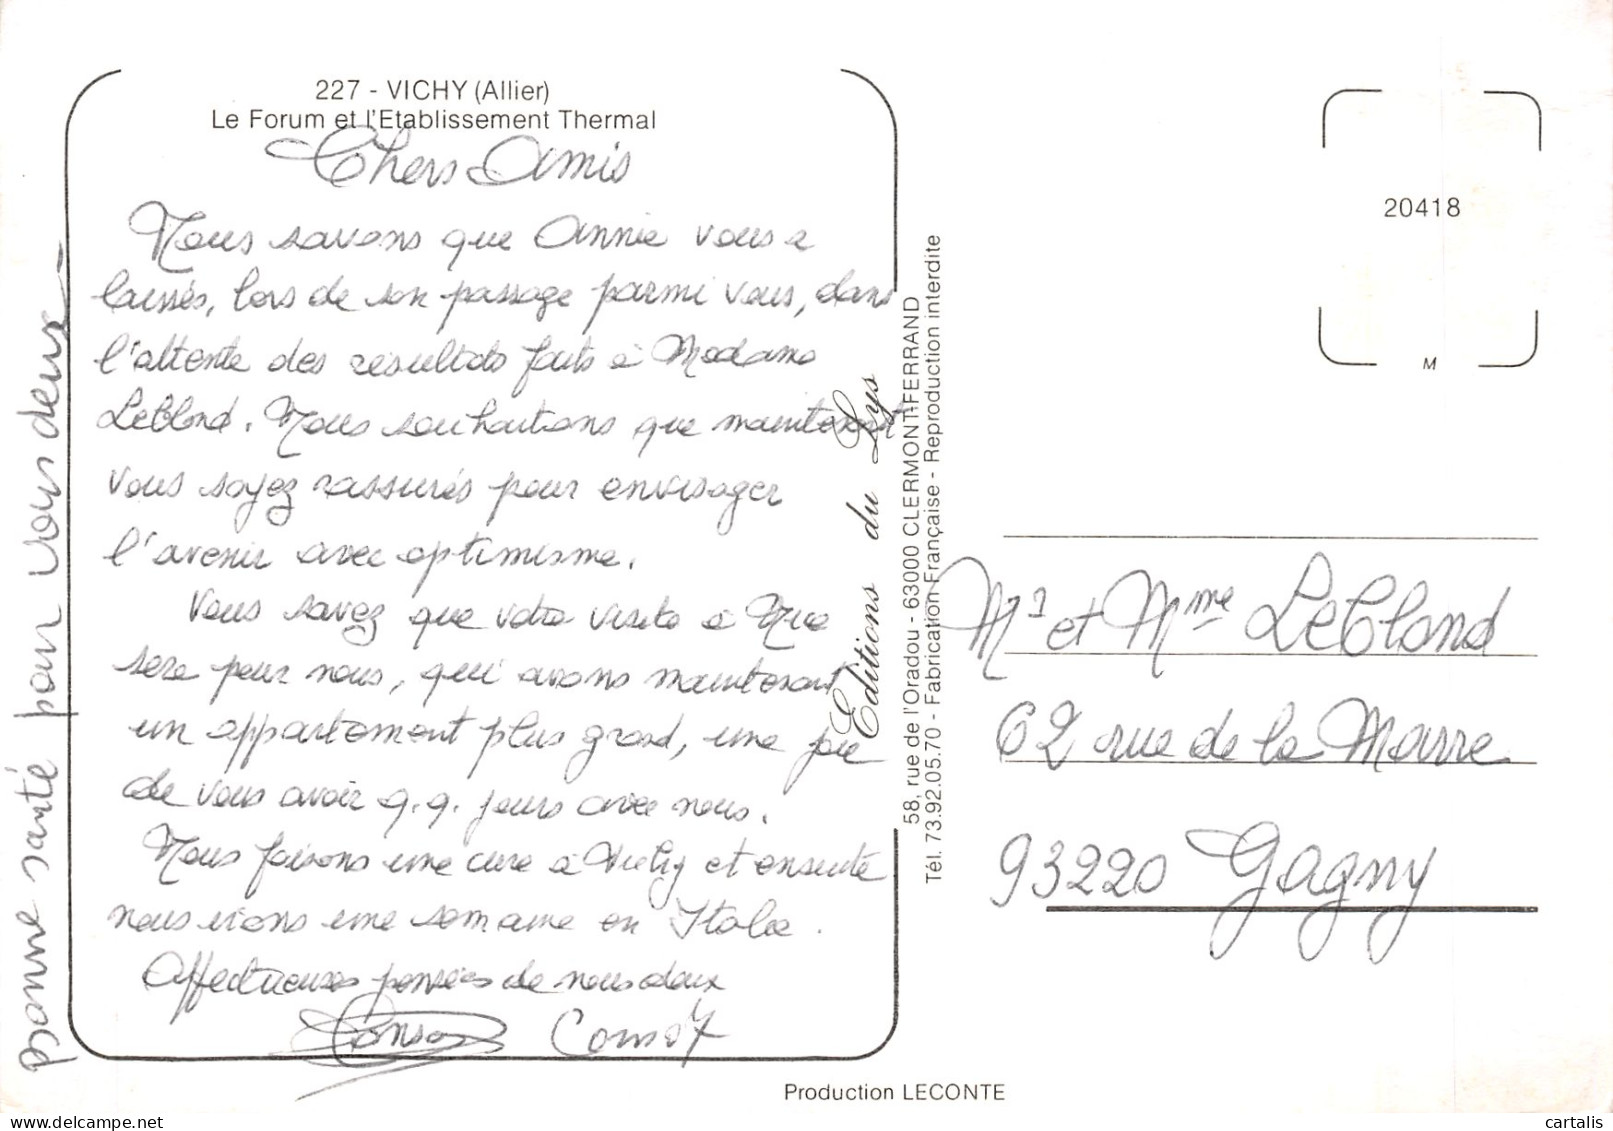 227 - VICHY (Allier)
Le Forum et l'Etablissement Thermal
Chers Amis
Nous savons que Annie vous a
laissés, lors de son passage parmi vous, dans
l'attente des résultats faits à Madame
LeBlond. Nous souhaitions que maintenant
vous soyez rassurés pour envisager
l'avenir avec optimisme.
Vous savez que votre visite à
sera pour nous, qui avons maintenant
un appartement plus grand, une joie
de vous avoir q.q. jours avec nous.
Nous faisons une cure à Vichy et ensuite
nous irons une semaine en Italie.
Affectueuses pensées de nous deux
bonne santé pour vous deux
Editions du Lys
58, rue de l'Oradou - 63000 CLERMONT-FERRAND
Tél. 73.92.05.70 - Fabrication Française - Reproduction interdite
20418
M
Mr et Mme LeBlond
62 rue de la Marne
93220 Gagny
Production LECONTE
www.delcampe.net
cartalis